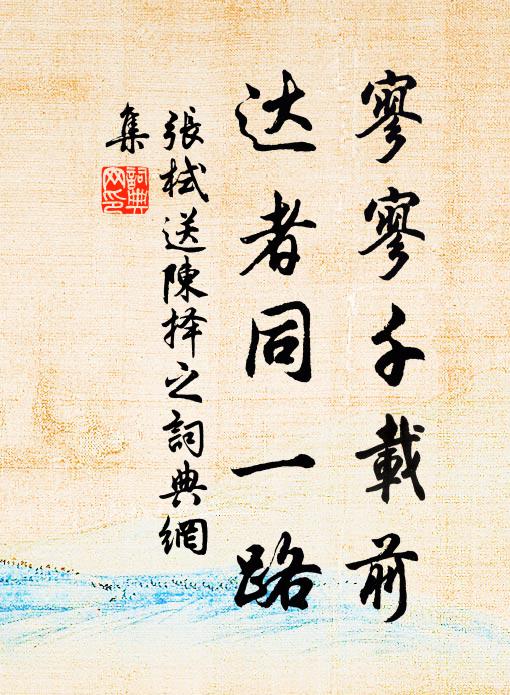 寥寥千載前
达者同一路
張栻送陳择之詞典網
集
詞典
网印